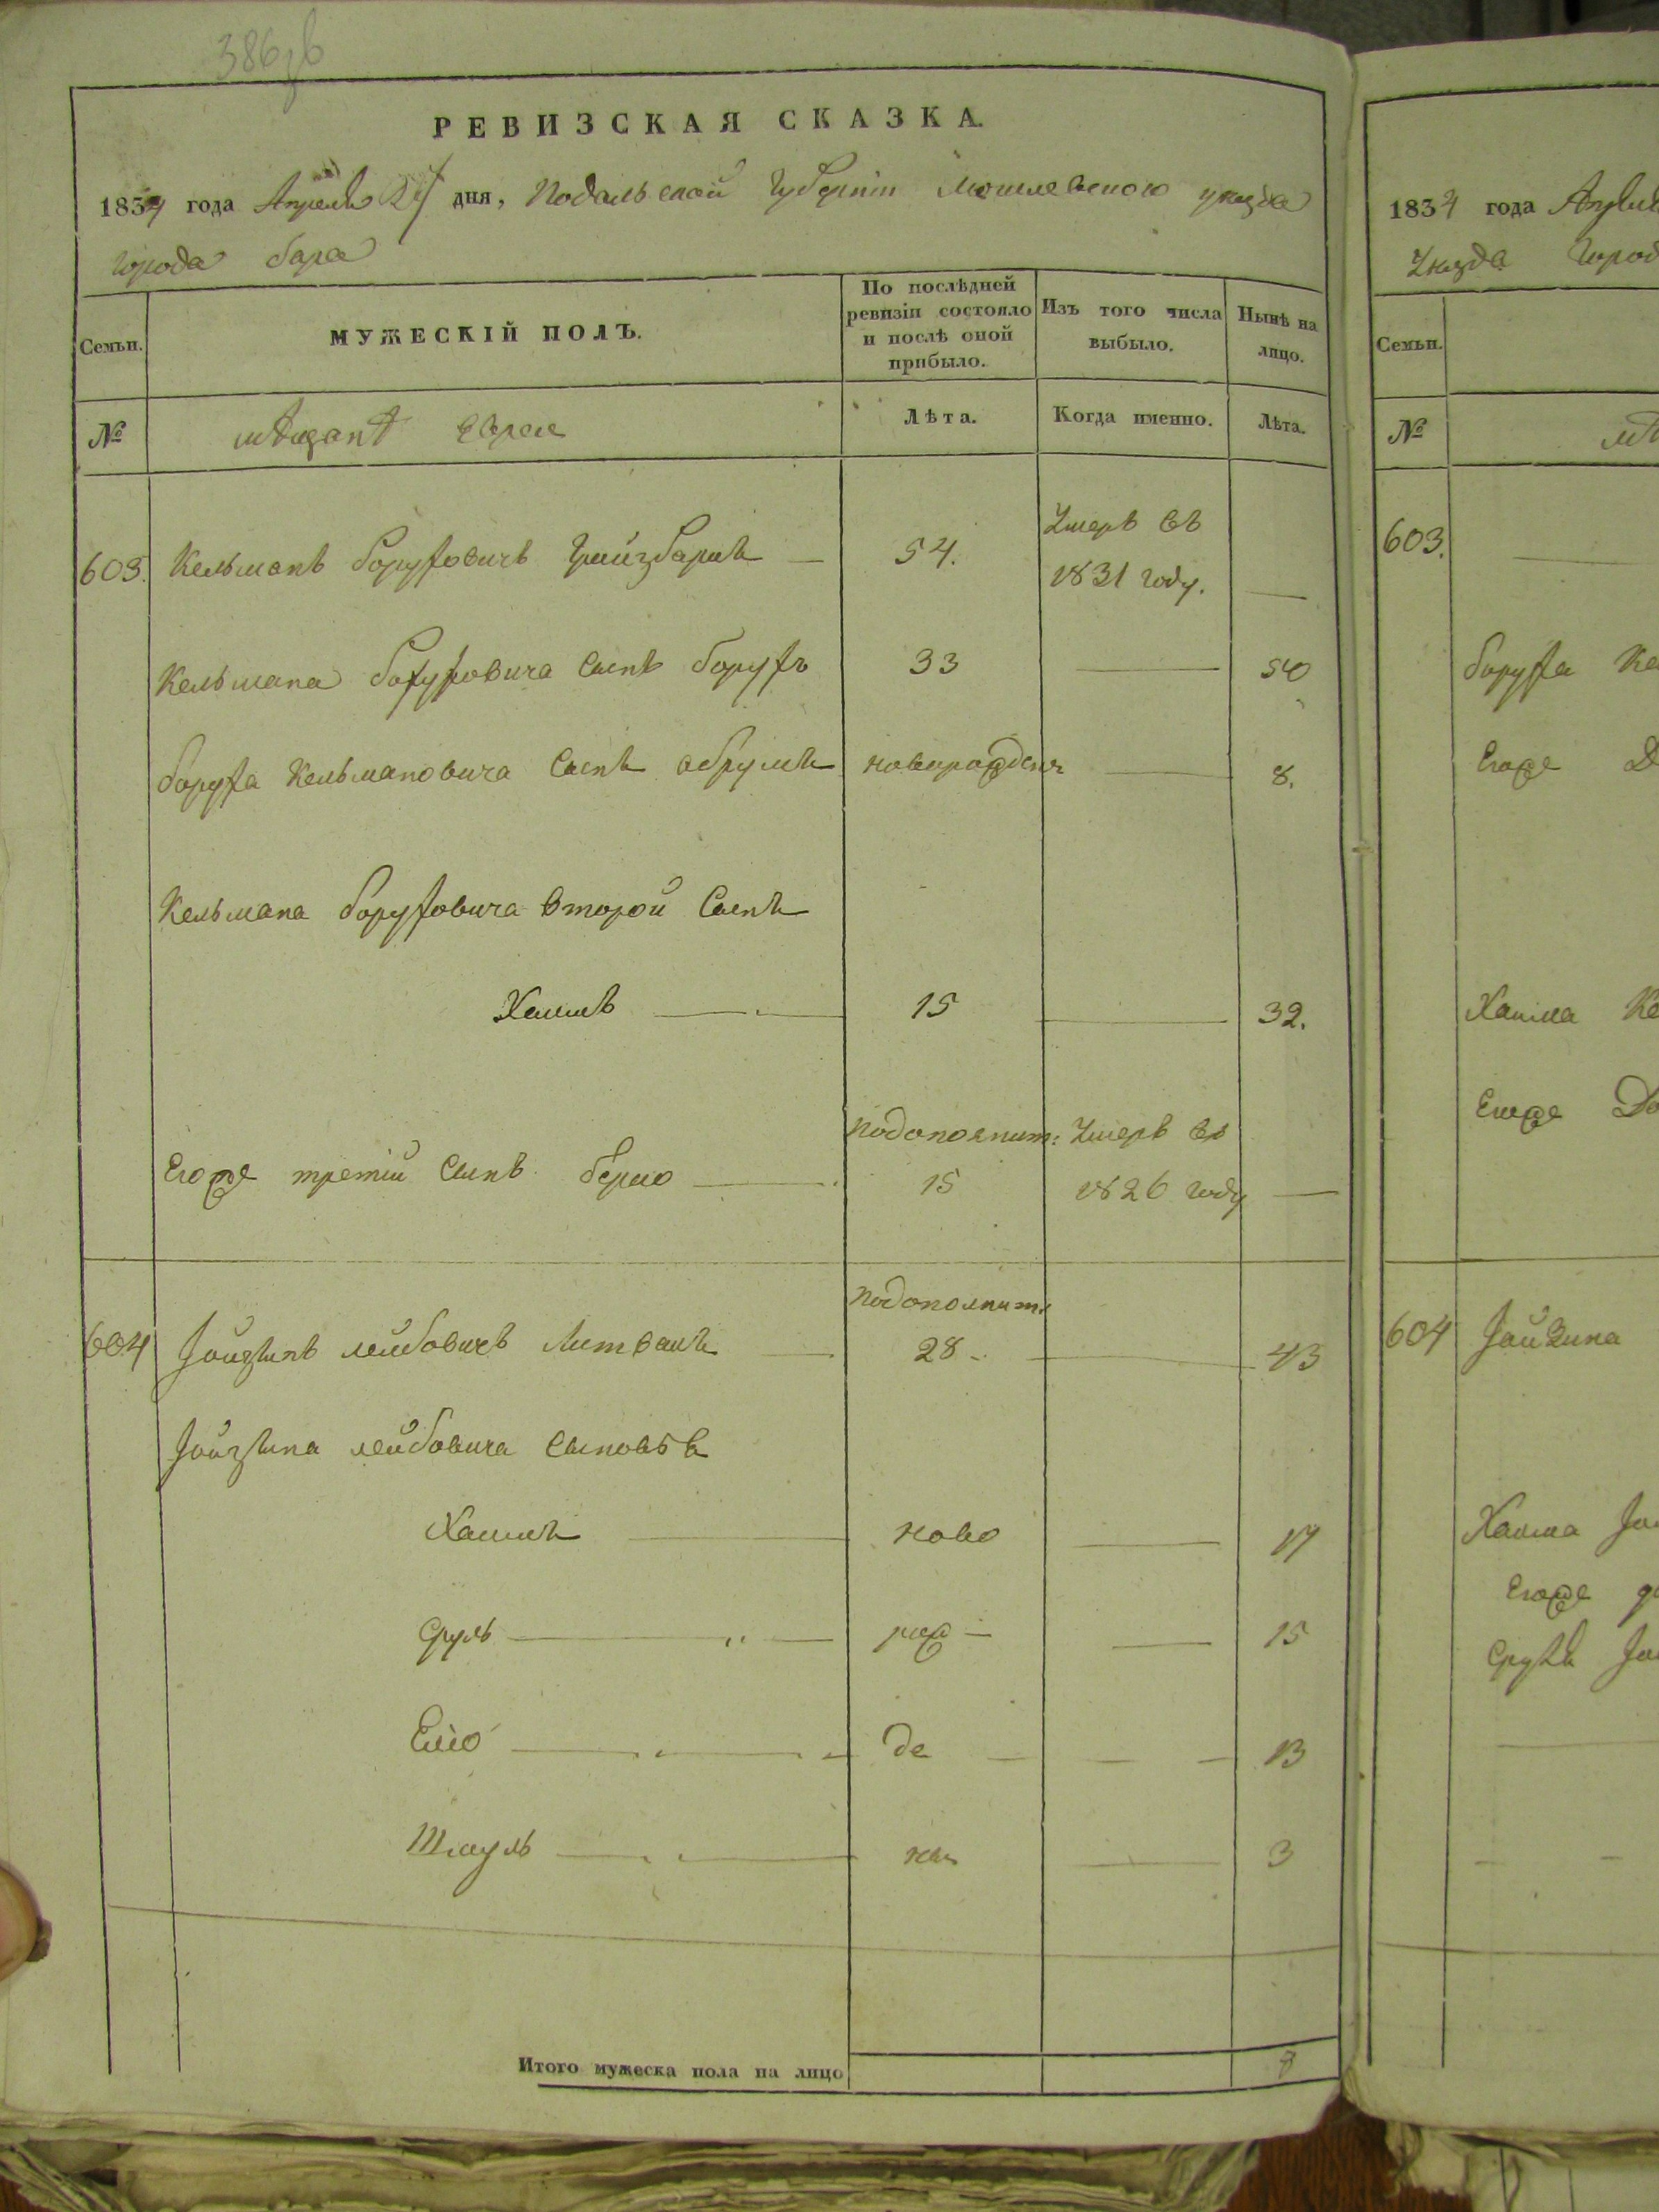 386зв
РЕВИЗСКАЯ СКАЗКА.
1834 года Апреля 27 дня, Подольской Губерніи Могилевского уезда
города бара
Семьи.
МУЖЕСКІЙ ПОЛЪ.
По послѣдней ревизіи состояло и послѣ оной прибыло.
Изъ того числа выбыло.
Нынѣ на лицо.
№
мѣщанѣ Евреи
Лѣта.
Когда именно.
Лѣта.
603. Кельманъ боруховичъ — 54. Умеръ въ 1831 году. —
Кельмана боруховича сынъ борухъ 33 — 50
боруха Кельмановича сынъ абрумъ новорожденъ — 8.
Кельмана боруховича второй сынъ
Хаимъ — 15 — 32.
Егоже третій сынъ берко — подополнит: 15 Умеръ въ 1826 году —
604 Іойзипъ лейбовичъ Литвакъ — подополнит: 28 — 43
Іойзипа лейбовича сыновья
Хаимъ — ново — 17
Сруль — рож — — 15
Елio — де — — — 13
Шмуль — ны — 3
Итого мужеска пола на лицо 7
1834 года
Уезда Город
Семьи.
№
603. —
боруха Ке
Егоже
Хаима Ке
Егоже До
604
Хаима Іо
Егоже